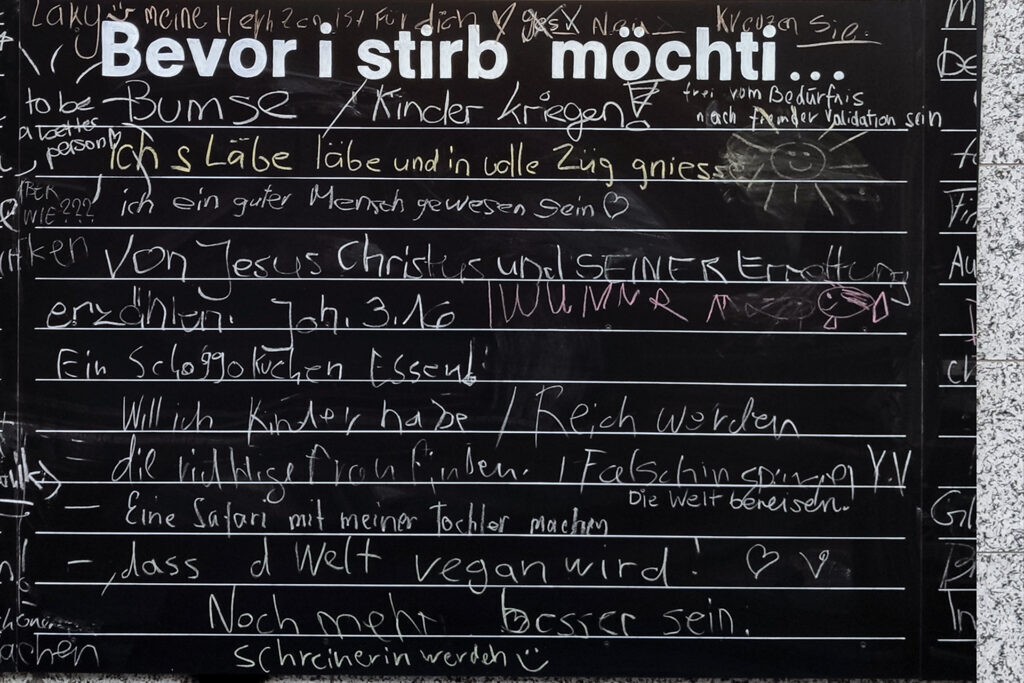 Laky meine ist für dich Kreuzen Sie
Bevor i stirb möchti...
to be a better person
Bumse / Kinder kriegen!
frei vom Bedürfnis
nach fremder Validation sein
ich s Läbe läbe und in volle Züg gniesse
ABER WIE???
ich ein guter Mensch gewesen sein♡
Von Jesus Christus und SEINER Errettung
erzählen. Joh. 3.16
Ein Schoggokuchen Essen!
Will ich Kinder habe / Reich werden
die richtige frau finden. / Y.V
Die Welt bereisen.
— Eine Safari mit meiner Tochter machen
— , dass d Welt vegan wird! ♡ V
Noch mehr besser sein.
Schreinerin werden